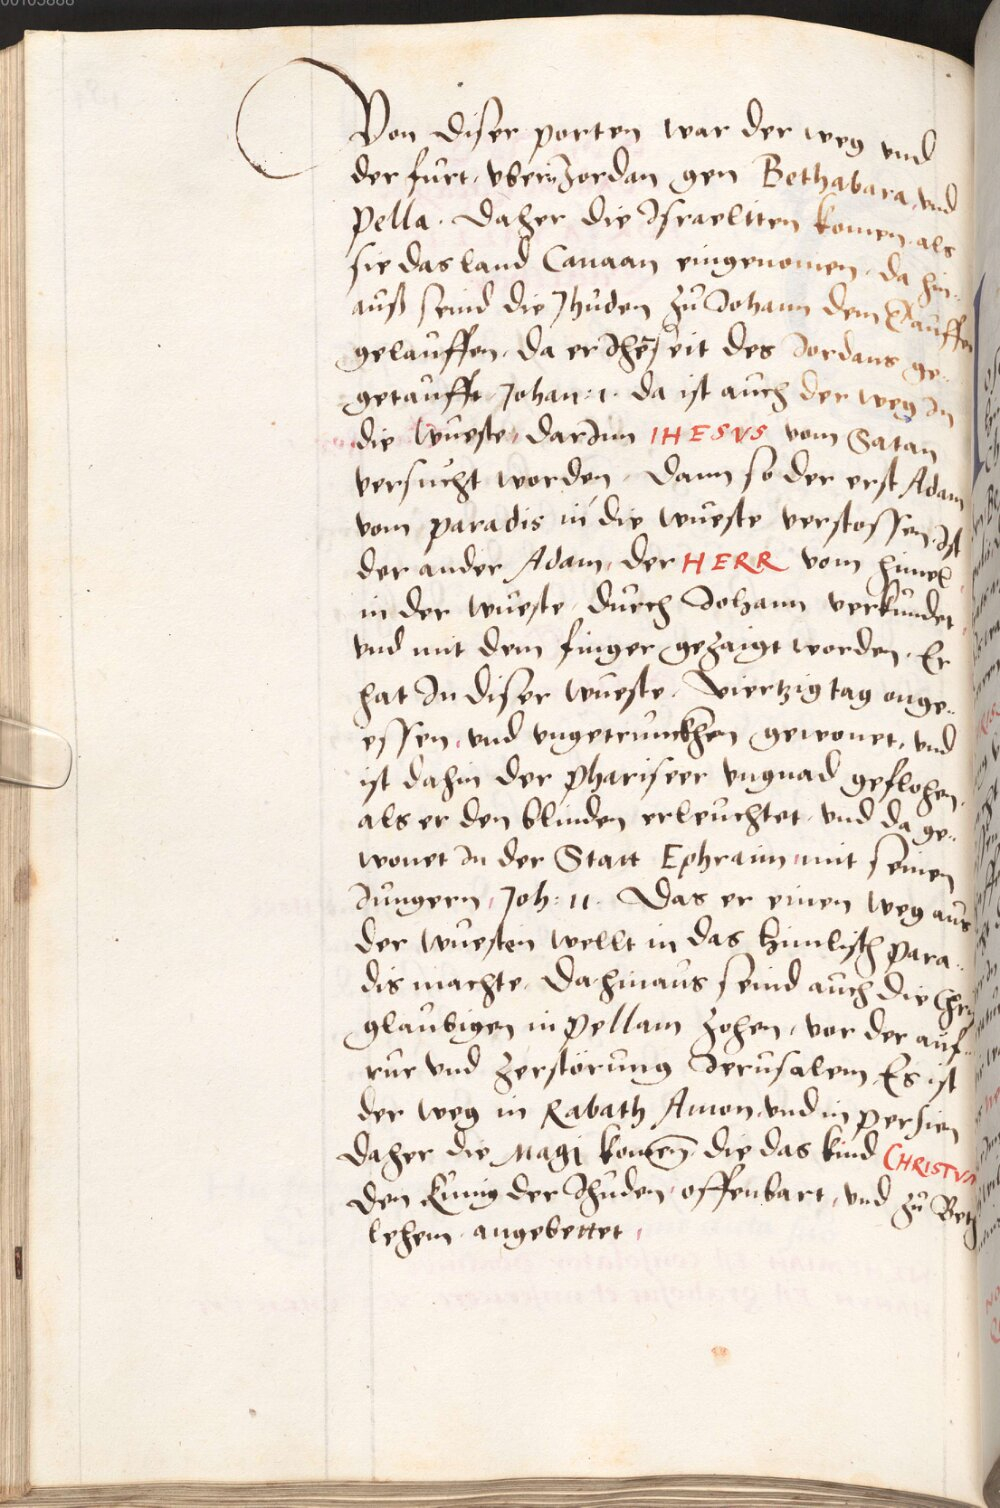 Von diser porten war der weg vnd
der furt, vbern Jordan gen Bethabara, vnd
Pella. Daher die Israeliten komen, als
sie das land Canaan eingenomen, da hin-
auß seind die Jhuden zů Johann dem Tauffer
gelauffen, da er Jhēseit des Jordans ge-
getaufft Johan: 1. da ist auch der weg In
die wueste, darInn IHESVS vom Satan
versucht worden, Dann so der erst Adam
vom paradis in die wueste verstossen, Ist
der ander Adam, der HERR vom himel
in der wueste durch Johann verkundet
vnd mit dem finger gezaigt worden, Er
hat In diser wueste, viertzig tag onge-
essen, vnd vngetrunckhen gewonet, vnd
ist dahin der phariseer vngnad geflohen,
als er den blinden erleuchtet, vnd da ge-
wonet In der Statt Ephraim mit seinen
Jungern, Joh: 11. Das er einen weg aus
der wuesten wellt in das himlisch para-
dis machte, Dahinaus seind auch die Chr
glaubigen in Pellam zohen, vor der auf-
rur vnd zerstörung Jerusalem, Es ist
der weg in Rabath Amon, vnd in persien
daher die Magi komen die das kind CHRISTVM
den kunig der Jhuden, offenbart, vnd zů Beth
lehem angebettet,